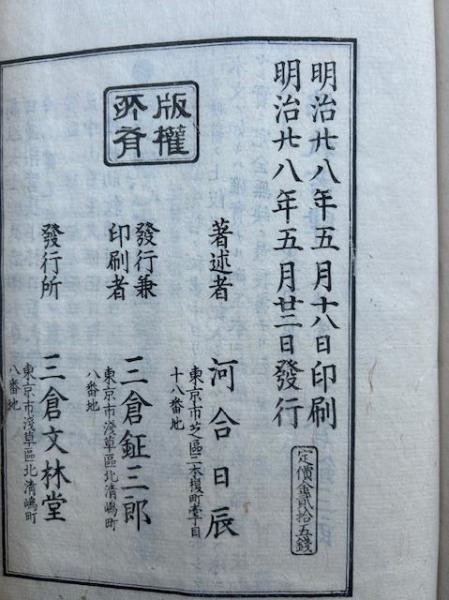 明治廿八年五月十八日印刷
明治廿八年五月廿二日發行
定價金貳拾五錢
版權所有
著述者
河合日辰
東京市芝區二本榎町壹丁目
十八番地
發行兼
印刷者
三倉鉦三郎
東京市淺草區北清嶋町
八番地
發行所
三倉文林堂
東京市淺草區北清嶋町
八番地